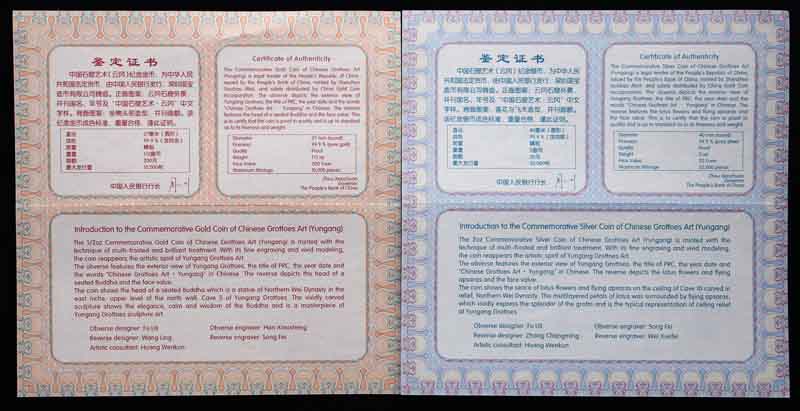 鉴定证书
中国石窟艺术(云冈)纪念金币,为中华人民
共和国法定货币,由中国人民银行发行,深圳国宝
造币有限公司铸造。正面图案:云冈石窟外景,
并刊国名、年号及“中国石窟艺术·云冈”中文
字样。背面图案:坐佛头部造型,并刊面额。该
纪念金币成色标准、重量合格,谨此证明。
直径 27毫米(圆形)
成色 99.9%(含纯金)
质量 精制
重量 1/2盎司
面额 200元
最大发行量 10,000枚
中国人民银行行长
Certificate of Authenticity
The Commemorative Gold Coin of Chinese Grottoes Art
(Yungang) is legal tender of the People's Republic of China,
issued by the People's Bank of China, minted by Shenzhen
Guobao Mint, and solely distributed by China Gold Coin
Incorporation. The obverse depicts the exterior view of
Yungang Grottoes, the title of PRC, the year date and the words
"Chinese Grottoes Art · Yungang" in Chinese. The reverse
features the head of a seated Buddha and the face value. This
is to certify that the coin is proof in quality and is up to standard
as to its fineness and weight.
Diameter 27 mm (round)
Fineness 99.9 % (pure gold)
Quality Proof
Weight 1/2 oz
Face Value 200 Yuan
Maximum Mintage 10,000 pieces
Zhou Xiaochuan
Governor
The People's Bank of China
Introduction to the Commemorative Gold Coin of Chinese Grottoes Art (Yungang)
The 1/2oz Commemorative Gold Coin of Chinese Grottoes Art (Yungang) is minted with the
technique of multi-frosted and brilliant treatment. With its fine engraving and vivid modeling,
the coin reappears the artistic spirit of Yungang Grottoes Art.
The obverse features the exterior view of Yungang Grottoes, the title of PRC, the year date and
the words "Chinese Grottoes Art · Yungang" in Chinese. The reverse depicts the head of a
seated Buddha and the face value.
The coin shows the head of a seated Buddha which is a statue of Northern Wei Dynasty in the
east niche, upper level of the north wall, Cave 5 of Yungang Grottoes. The vividly carved
sculpture shows the elegance, calm and wisdom of the Buddha and is a masterpiece of
Yungang Grottoes sculpture art.
Obverse designer: Yu Lili Obverse engraver: Han Xiaosheng
Reverse designer: Wang Ling Reverse engraver: Song Fei
Artistic consultant: Huang Wenkun
鉴定证书
中国石窟艺术(云冈)纪念银币,为中华人民
共和国法定货币,由中国人民银行发行,深圳国宝
造币有限公司铸造。正面图案:云冈石窟外景,
并刊国名、年号及“中国石窟艺术·云冈”中文
字样。背面图案:莲花与飞天造型,并刊面额。该
纪念银币成色标准、重量合格,谨此证明。
直径 40毫米(圆形)
成色 99.9%(含纯银)
质量 精制
重量 2盎司
面额 20元
最大发行量 20,000枚
中国人民银行行长
Certificate of Authenticity
The Commemorative Silver Coin of Chinese Grottoes Art
(Yungang) is legal tender of the People's Republic of China,
issued by the People's Bank of China, minted by Shenzhen
Guobao Mint, and solely distributed by China Gold Coin
Incorporation. The obverse depicts the exterior view of
Yungang Grottoes, the title of PRC, the year date and the
words "Chinese Grottoes Art · Yungang" in Chinese. The
reverse features the lotus flowers and flying apsaras and
the face value. This is to certify that the coin is proof in
quality and is up to standard as to its fineness and weight.
Diameter 40 mm (round)
Fineness 99.9 % (pure silver)
Quality Proof
Weight 2 oz
Face Value 20 Yuan
Maximum Mintage 20,000 pieces
Zhou Xiaochuan
Governor
The People's Bank of China
Introduction to the Commemorative Silver Coin of Chinese Grottoes Art (Yungang)
The 2oz Commemorative Silver Coin of Chinese Grottoes Art (Yungang) is minted with the
technique of multi-frosted and brilliant treatment. With its fine engraving and vivid modeling,
the coin reappears the artistic spirit of Yungang Grottoes Art.
The obverse features the exterior view of Yungang Grottoes, the title of PRC, the year date and
"Chinese Grottoes Art · Yungang" in Chinese. The reverse depicts the lotus flowers and flying
apsaras and the face value.
The coin shows the scene of lotus flowers and flying apsaras on the ceiling of Cave 10 carved in
relief, Northern Wei Dynasty. The multilayered petals of lotus was surrounded by flying apsaras,
which vividly express the splendor of the grotto and is the typical representation of ceiling relief
at Yungang Grottoes.
Obverse designer: Yu Lili Obverse engraver: Song Fei
Reverse designer: Zhang Changming Reverse engraver: Wei Xuefei
Artistic consultant: Huang Wenkun